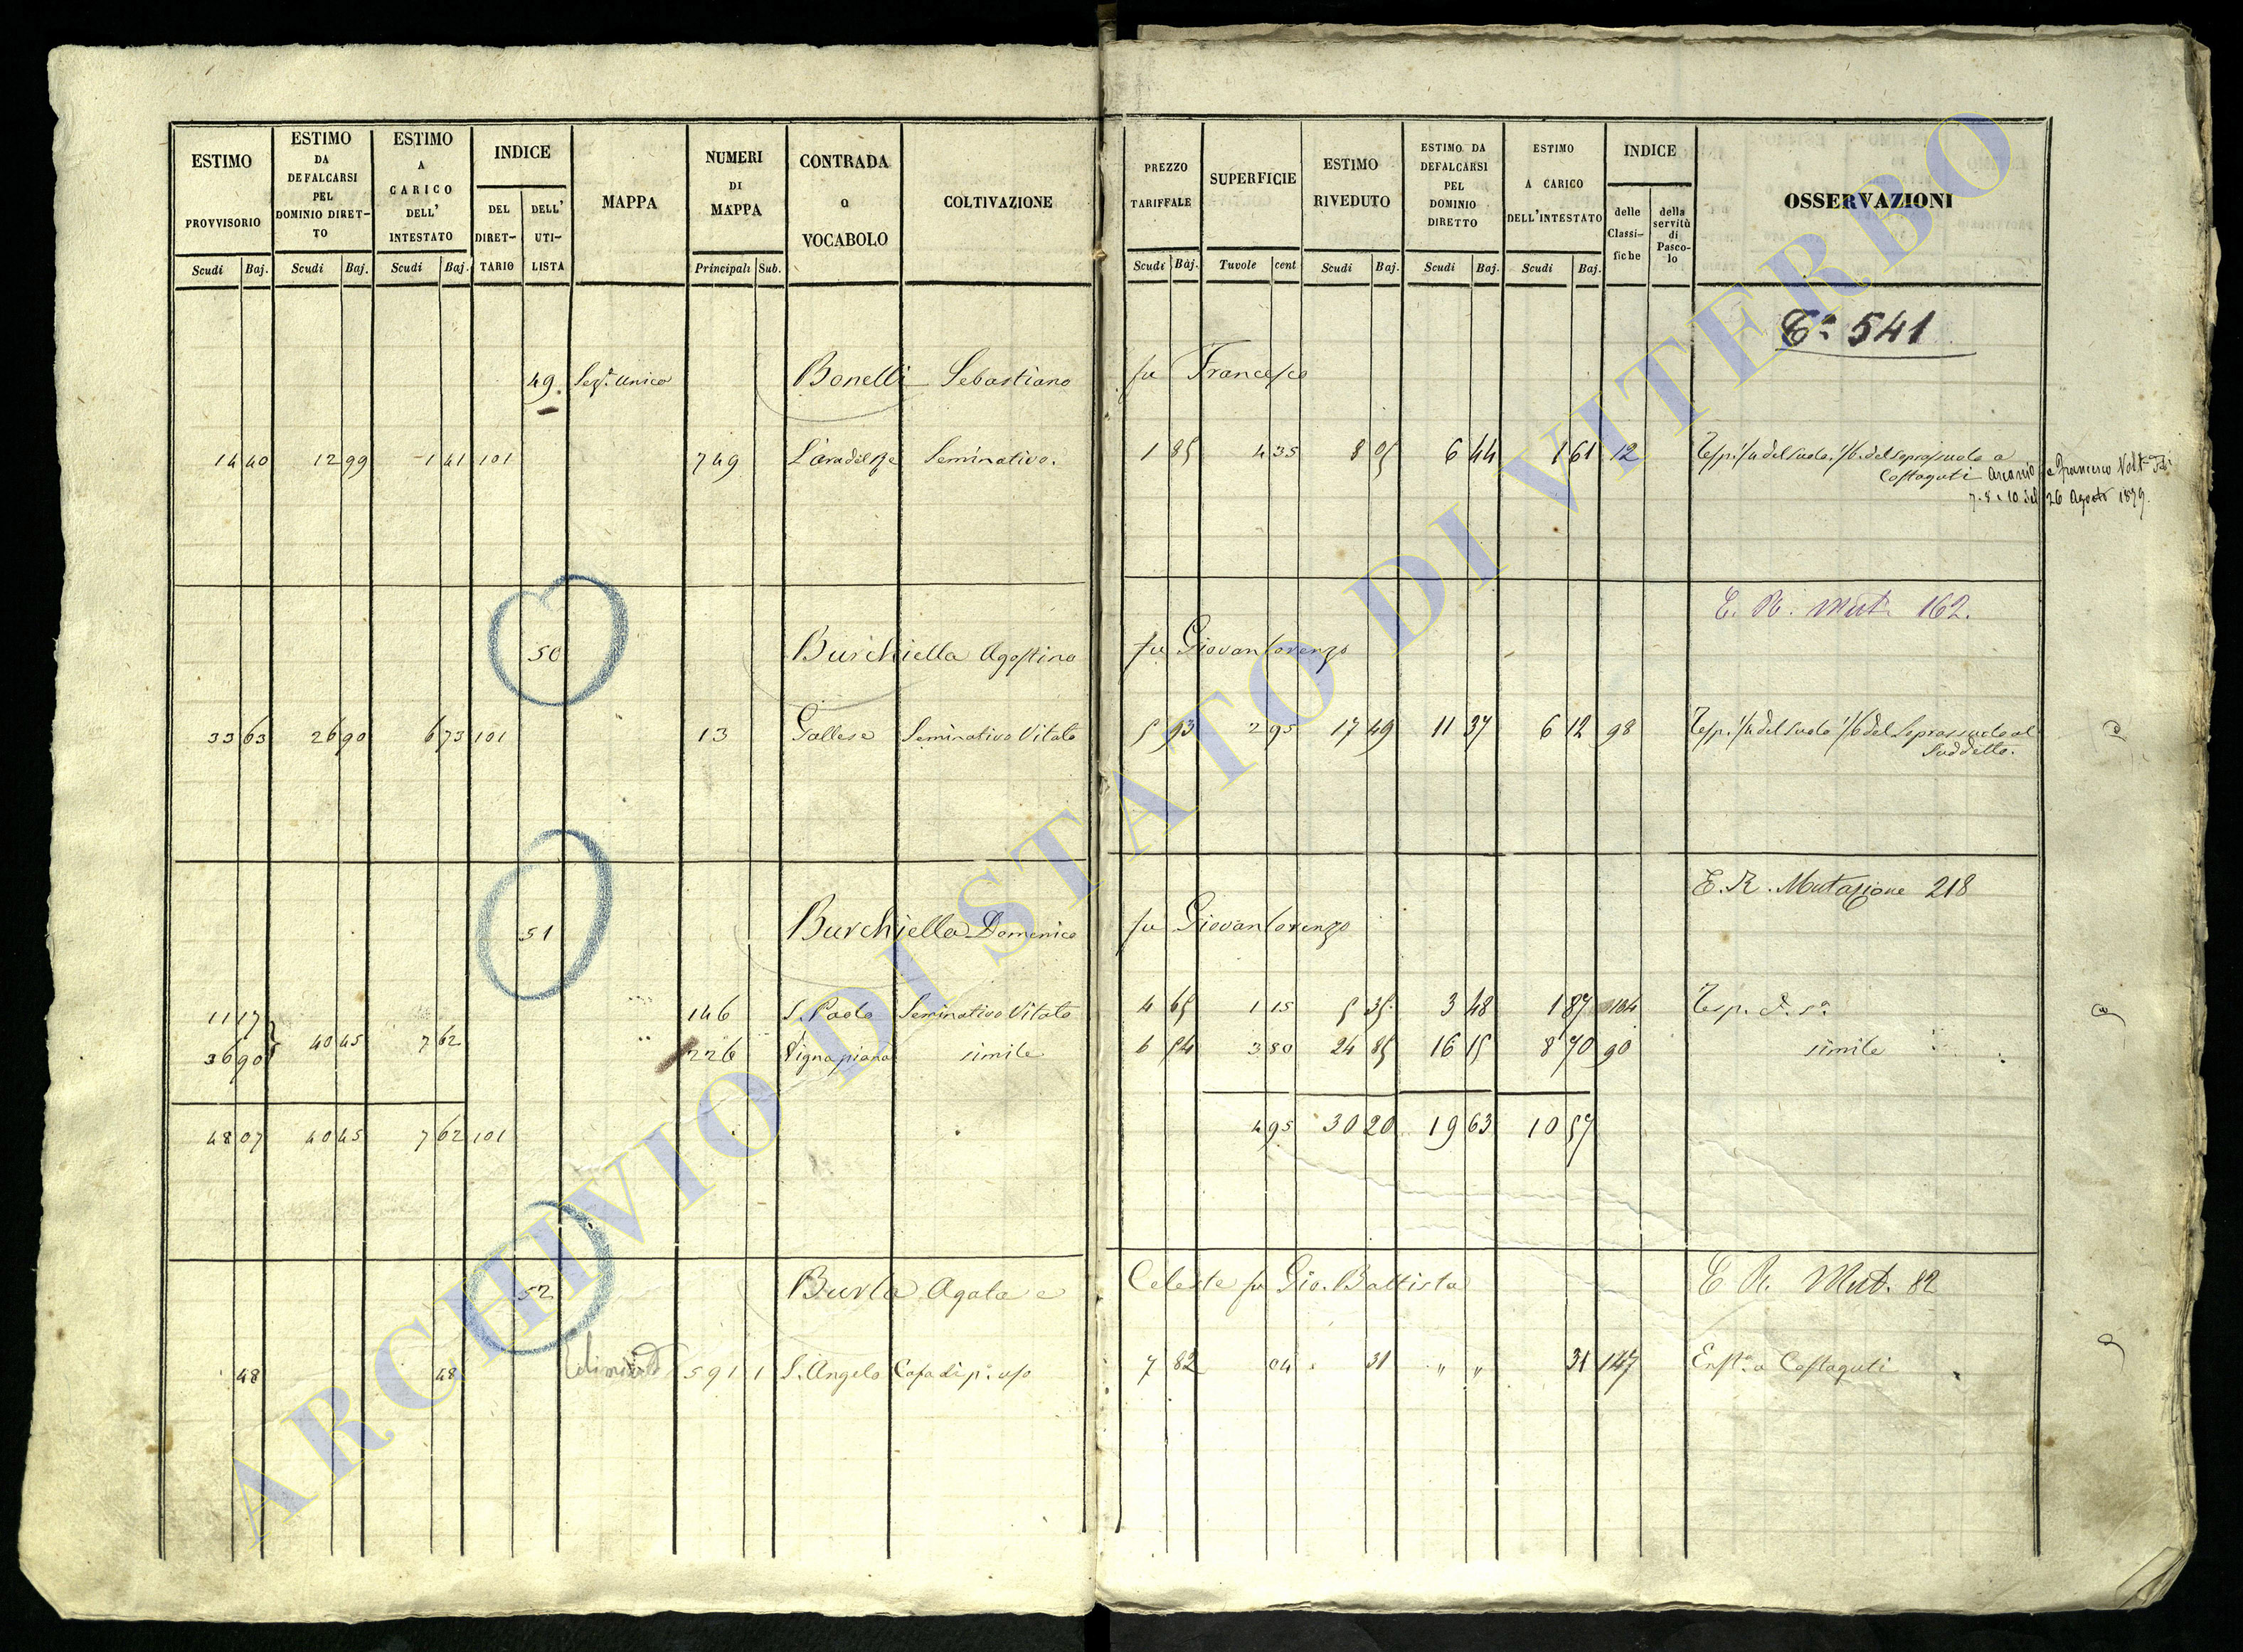 ESTIMO PROVVISORIO
ESTIMO DA DEFALCARSI PEL DOMINIO DIRET-TO
ESTIMO A CARICO DELL' INTESTATO
INDICE
DEL DIRET-TARIO
DELL' UTI-LISTA
MAPPA
NUMERI DI MAPPA
CONTRADA O VOCABOLO
COLTIVAZIONE
PREZZO TARIFFALE
SUPERFICIE
ESTIMO RIVEDUTO
ESTIMO DA DEFALCARSI PEL DOMINIO DIRETTO
ESTIMO A CARICO DELL'INTESTATO
INDICE
delle Classi-fiche
della servitù di Pasco-lo
OSSERVAZIONI
Scudi Baj. Scudi Baj. Scudi Baj. Principali Sub. Scudi Baj. Tuvole cent Scudi Baj. Scudi Baj. Scudi Baj.
541
49 Sez.e Unica Bonelli Sebastiano fu Francesco
14 40 12 99 1 41 101 749 Seminativo. 1 85 4 35 8 05 6 44 1 61 12 Resp. 1/4 del suolo, 1/6 del soprasuolo a
Costaguti Ascanio e Francesco
7. 8. 10 del 26 Agosto 1879.
E. R. Mut. 162.
50 Burchiella Agostino fu Giovan Lorenzo
33 63 26 90 6 73 101 13 Gallese Seminativo Vitato 5 93 2 95 17 49 11 37 6 12 98 Resp. 1/4 del suolo 1/6 del Soprassuolo al
Suddetto.
E. R. Mutazione 218
51 Burchiella Domenico fu Giovan Lorenzo
11 17 146 S. Paolo Seminativo Vitato 4 65 1 15 5 35 3 48 1 87 104 Resp. d. s.a
40 45 7 62
36 90 226 Vigna piana simile 6 54 3 80 24 85 16 15 8 70 90 simile
48 07 40 45 7 62 101 4 95 30 20 19 63 10 57
52 Burla Agata e Celeste fu Gio. Battista E R. Mut. 82
48 48 591 1 S. Angelo Casa di p.o uso 7 82 04 31 " " 31 147 Enf.a a Costaguti
ARCHIVIO DI STATO DI VITERBO